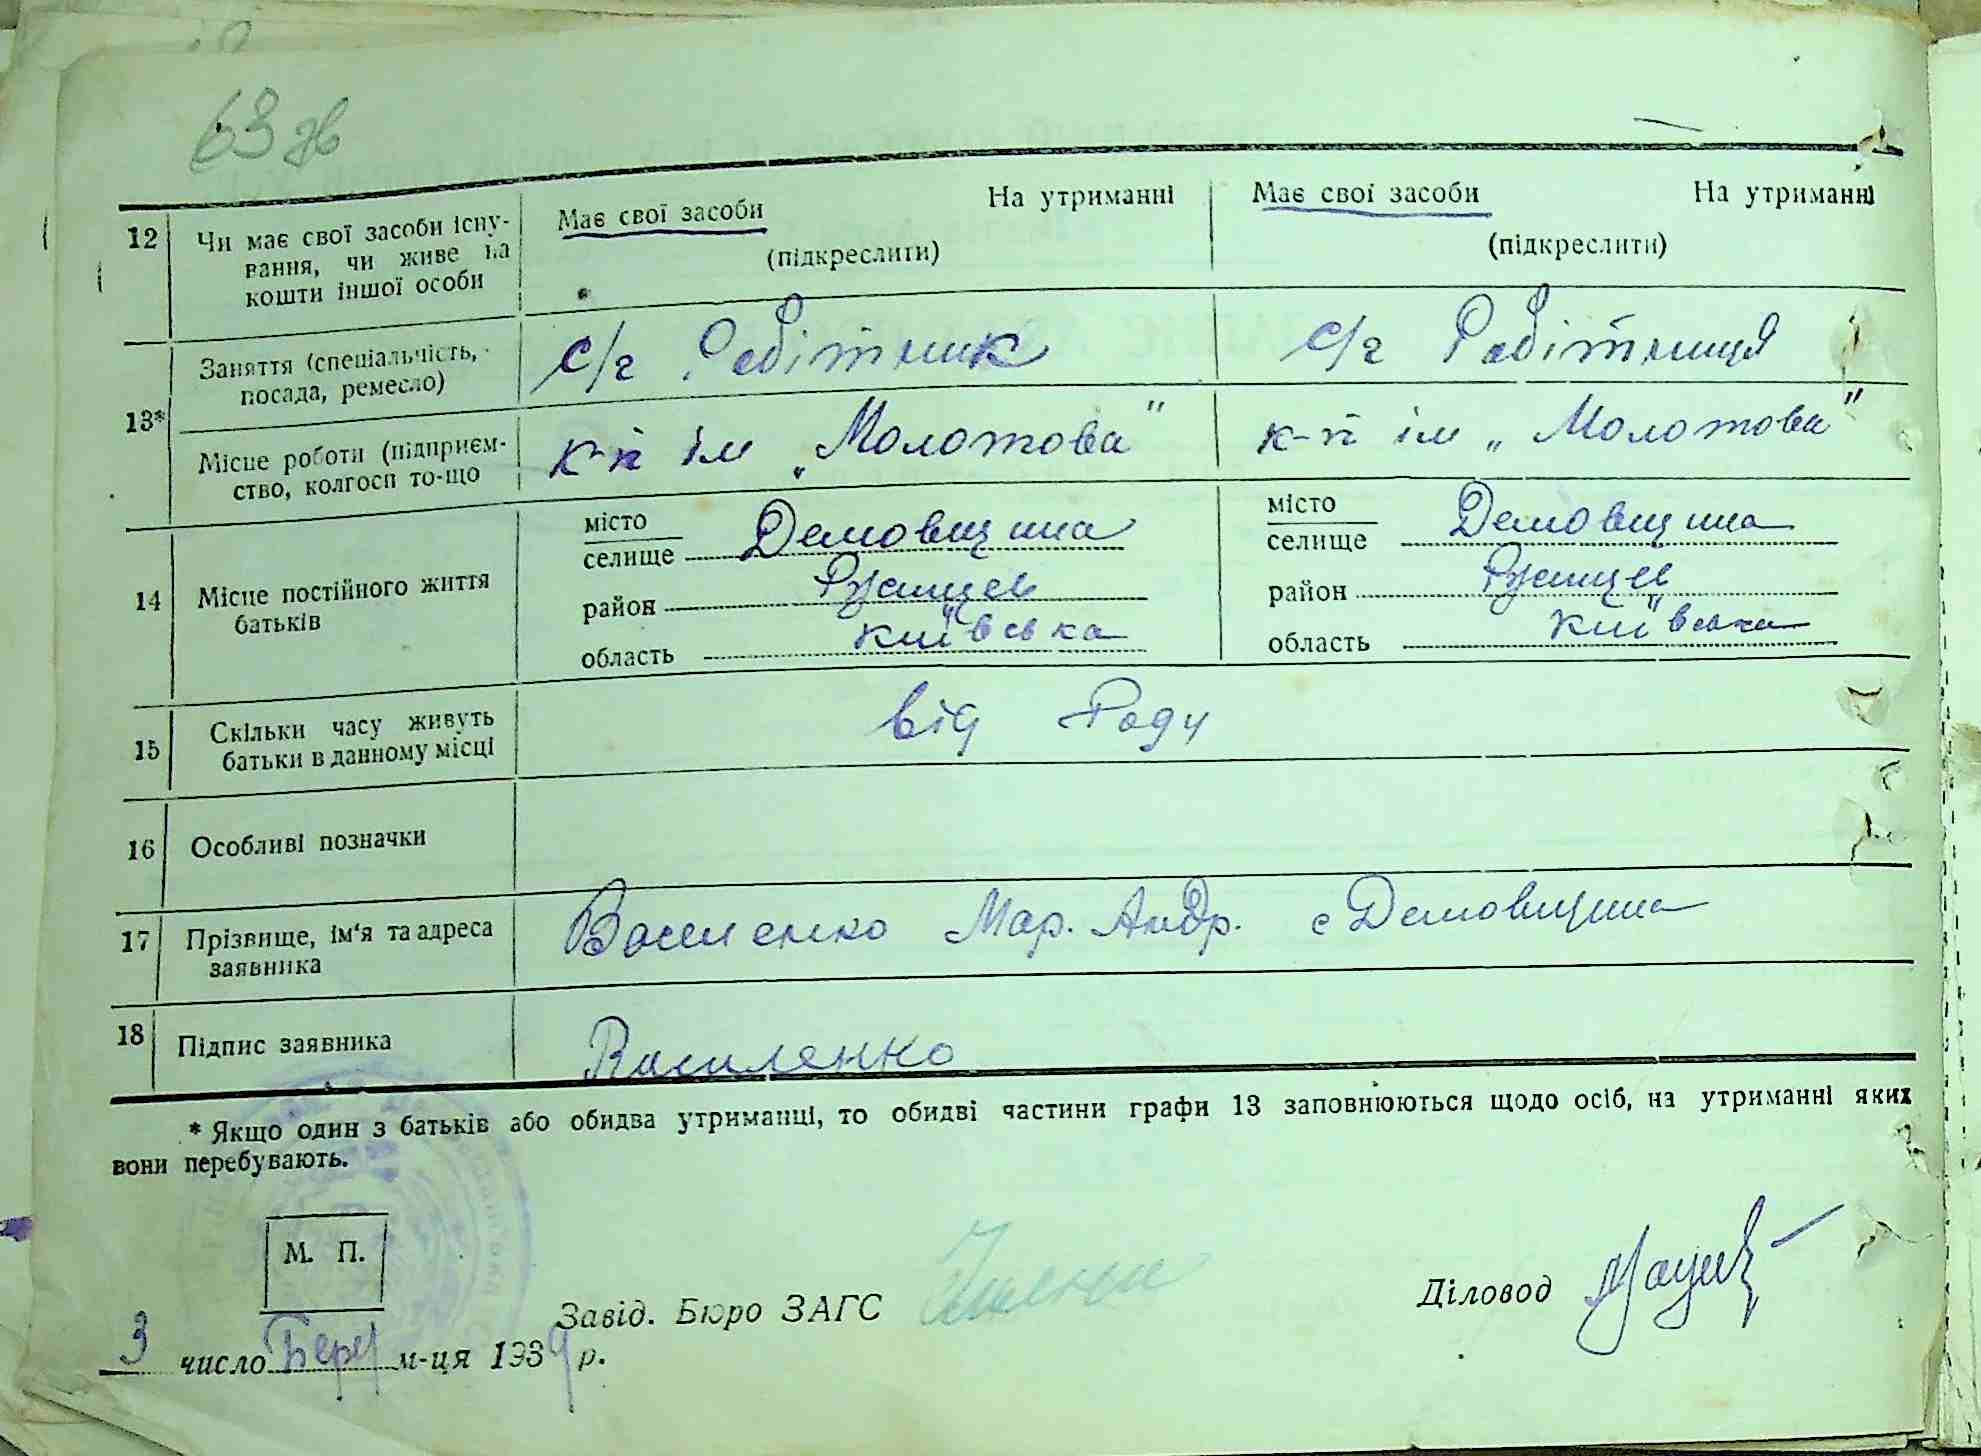 63 зв
12 Чи має свої засоби існу- Має свої засоби На утриманні Має свої засоби На утриманні
вання, чи живе на (підкреслити) (підкреслити)
кошти іншої особи
13*
Заняття (спеціальність, с/г Робітник с/г Робітниця
посада, ремесло)
Місце роботи (підприєм- к-п ім „Молотова" к-п ім „Молотова"
ство, колгосп то-що
14 Місце постійного життя
батьків
місто
селище Демовщина
район Ржищев
область київська
місто
селище Демовщина
район Ржищев
область київська
15 Скільки часу живуть від Роду
батьки в данному місці
16 Особливі позначки
17 Прізвище, ім'я та адреса Василенко Мар. Андр. с Демовщина
заявника
18 Підпис заявника Василенко
* Якщо один з батьків або обидва утриманці, то обидві частини графи 13 заповнюються щодо осіб, на утриманні яких
вони перебувають.
М. П.
Завід. Бюро ЗАГС
Діловод
3 число Бере м-ця 1939 р.